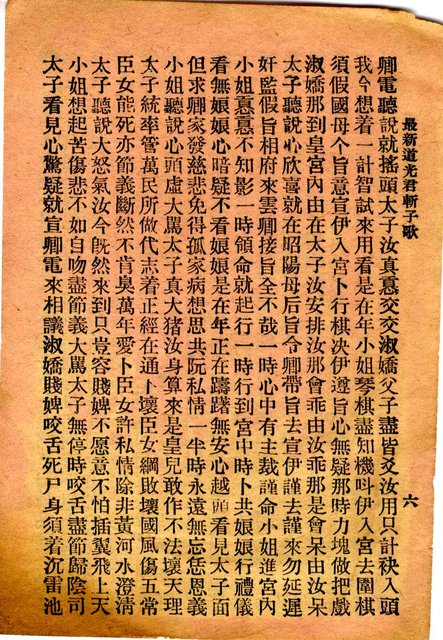 最新道光君斬子歌
六
卿電聽說就搖頭太子汝真憃交交淑嬌父子盡皆爻汝用只計秧入頭
我今想着一計智試來用看是在年小姐琴棋盡知機呌伊入宮去圍棋
須假國母个旨意宣伊入宮卜行棋决伊遵旨心無疑那時力塊做把戲
淑嬌那到皇宮內由在太子汝安排汝那會乖由汝乖那是會呆由汝呆
太子聽說心欣喜就在昭陽母后旨令卿帶旨去宣伊謹去謹來勿延遲
奸監假旨相府來雲卿接旨全不哉一時心中有主裁謹命小姐進宮內
小姐憃憃不知影一時領命就起行一時行到宮中時卜共娘娘行禮儀
看無娘娘心暗疑不看娘娘是在年正在躊躇無安心越頭看見太子面
但求卿家發慈悲免得孤家病想思共阮私情一半時永遠無忘恁恩義
小姐聽說心頭虛大罵太子真大猪汝身算來是皇兒敢作不法壞天理
太子統率管萬民所做代志着正經在通卜壞臣女綱敗壞國風傷五常
臣女能死亦節義斷然不肯臭萬年愛卜臣女許私情除非黃河水澄清
太子聽說大怒氣汝今既然來到只豈容賤婢不愿意不怕插翼飛上天
小姐想起苦傷悲不如自吻盡節義大罵太子無停時咬舌盡節歸陰司
太子看見心驚疑就宣卿電來相議淑嬌賤婢咬舌死尸身須着沉雷池